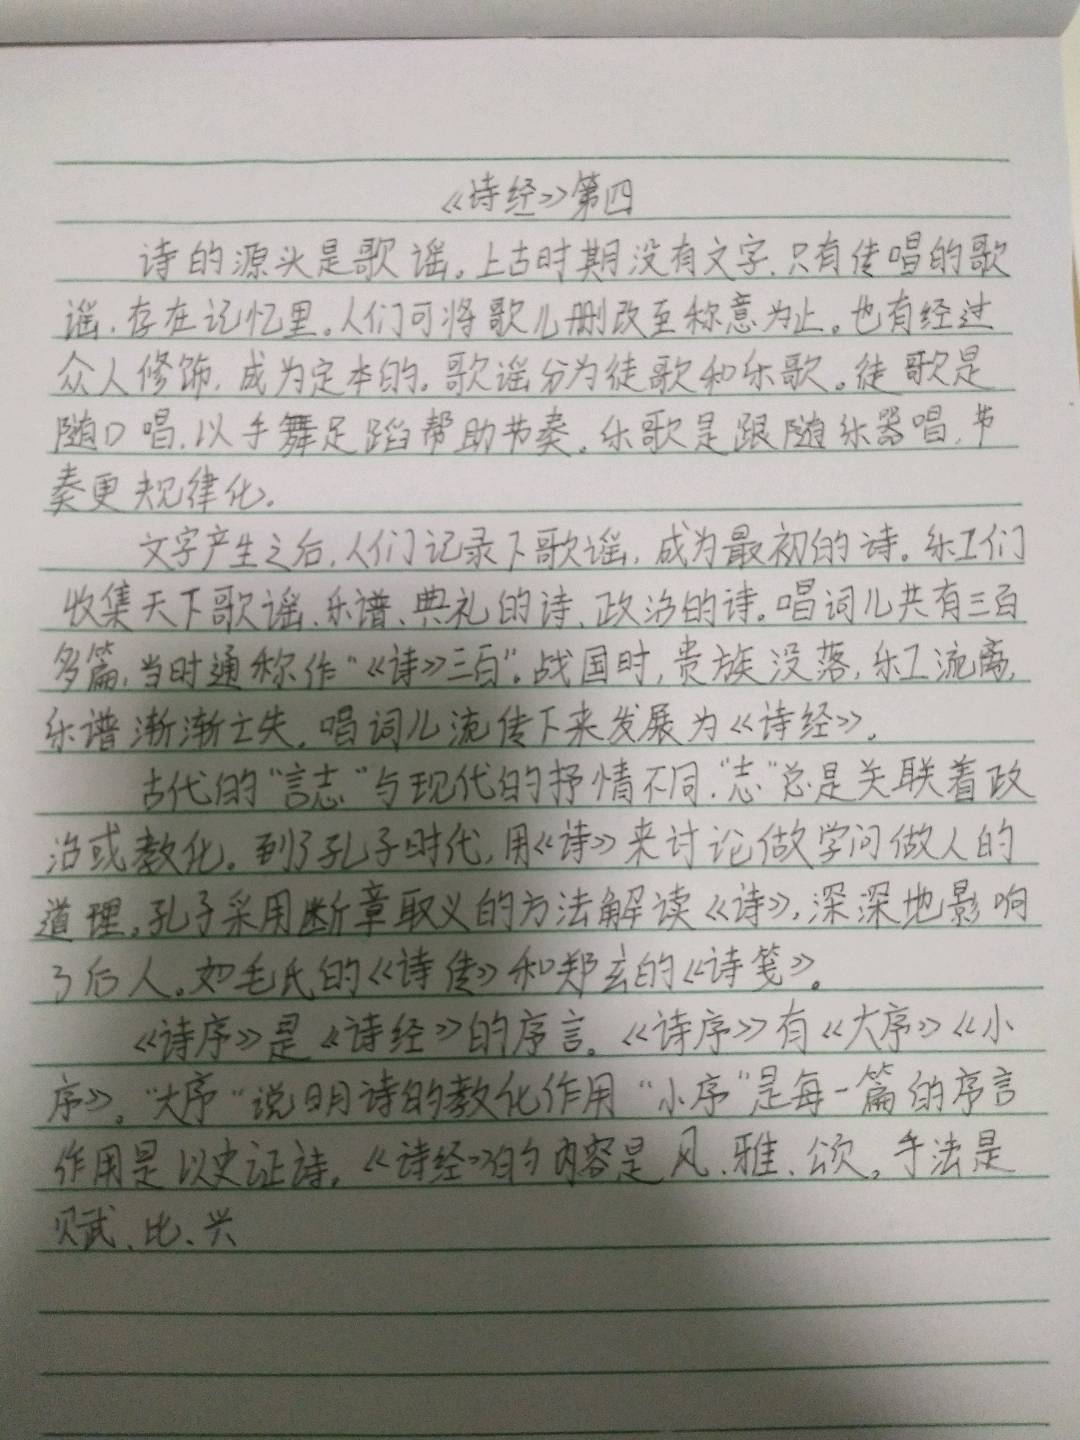 《诗经》第四
诗的源头是歌谣。上古时期没有文字,只有传唱的歌
谣,存在记忆里。人们可将歌儿删改至称意为止。也有经过
众人修饰,成为定本的。歌谣分为徒歌和乐歌。徒歌是
随口唱,以手舞足蹈帮助节奏。乐歌是跟随乐器唱,节
奏更规律化。
文字产生之后,人们记录下歌谣,成为最初的诗。乐工们
收集天下歌谣、乐谱、典礼的诗、政治的诗。唱词儿共有三百
多篇,当时通称作“《诗》三百”。战国时,贵族没落,乐工流离,
乐谱渐渐亡失,唱词儿流传下来发展为《诗经》。
古代的“言志”与现代的抒情不同,“志”总是关联着政
治或教化。到了孔子时代,用《诗》来讨论做学问做人的
道理。孔子采用断章取义的方法解读《诗》,深深地影响
了后人。如毛氏的《诗传》和郑玄的《诗笺》。
《诗序》是《诗经》的序言。《诗序》有《大序》《小
序》。“大序“说明诗的教化作用“小序”是每一篇的序言
作用是以史证诗。《诗经》的内容是风、雅、颂。手法是
赋、比、兴